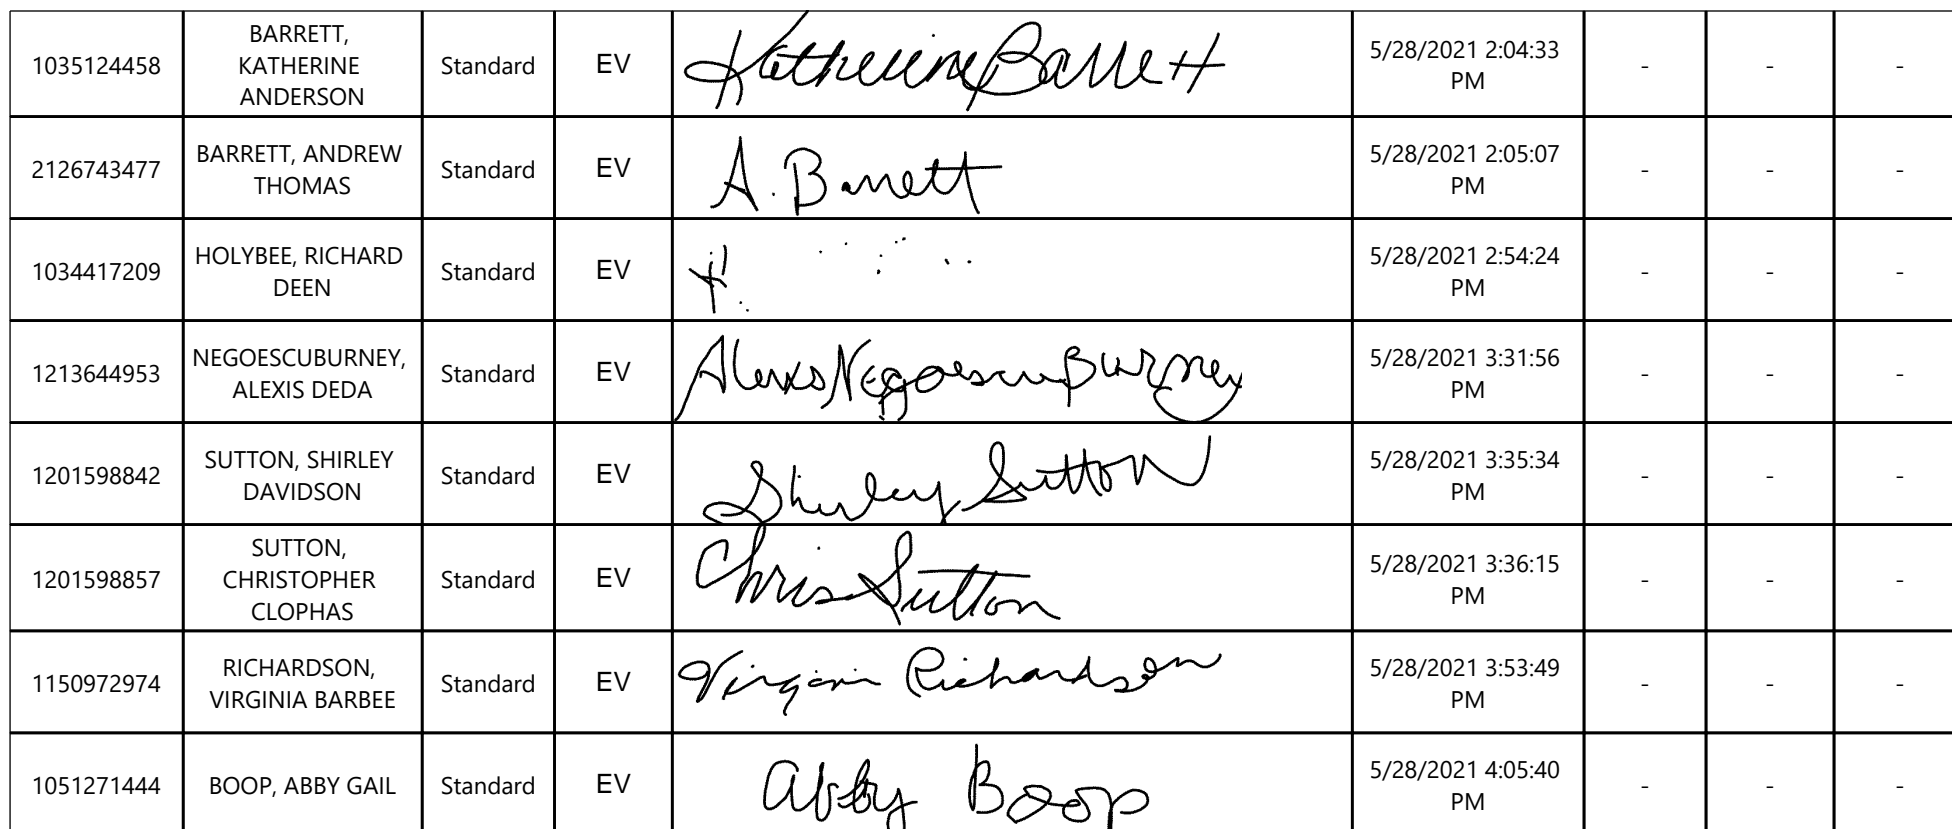 1035124458 BARRETT, KATHERINE ANDERSON Standard EV Katherine Barrett 5/28/2021 2:04:33 PM - - -
2126743477 BARRETT, ANDREW THOMAS Standard EV A. Barrett 5/28/2021 2:05:07 PM - - -
1034417209 HOLYBEE, RICHARD DEEN Standard EV 5/28/2021 2:54:24 PM - - -
1213644953 NEGOESCUBURNEY, ALEXIS DEDA Standard EV Alexis Negoescu Burney 5/28/2021 3:31:56 PM - - -
1201598842 SUTTON, SHIRLEY DAVIDSON Standard EV Shirley Sutton 5/28/2021 3:35:34 PM - - -
1201598857 SUTTON, CHRISTOPHER CLOPHAS Standard EV Chris Sutton 5/28/2021 3:36:15 PM - - -
1150972974 RICHARDSON, VIRGINIA BARBEE Standard EV Virginia Richardson 5/28/2021 3:53:49 PM - - -
1051271444 BOOP, ABBY GAIL Standard EV Abby Boop 5/28/2021 4:05:40 PM - - -